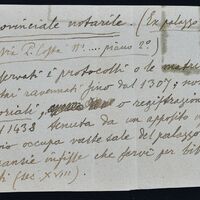 rovinciale notarile. (Ex palazzo
Via P. Costa n° .... piano 2°)
servati i protocolli o le matri
tari ravennati fino dal 1307, no
toriali, o registrazion
1438 tenuta da un apposito n
io occupa vaste sale del palazzo
cansie infisse che servì per bib
ti (sec. XVIII).